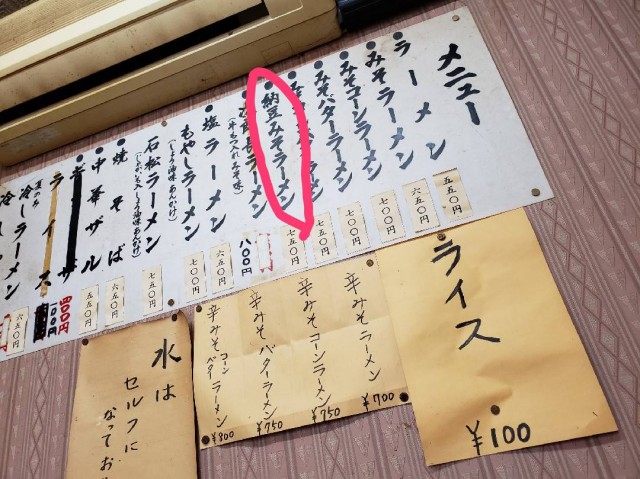 メニュー
ラーメン
五五〇円
みそラーメン
六五〇円
みそコーンラーメン
七〇〇円
みそバターラーメン
七〇〇円
七五〇円
納豆みそラーメン
七五〇円
ラーメン
(牛もつ入れみそ味)
八〇〇円
塩ラーメン
六五〇円
もやしラーメン
(しょう油味あんかけ)
七〇〇円
石松ラーメン
七五〇円
焼そば
六五〇円
中華ザル
五五〇円
ライス
100円
冷しラーメン
六五〇円
ライス
¥100
辛みそラーメン
¥700
辛みそコーンラーメン
¥750
辛みそバターラーメン
¥750
辛みそコーンバターラーメン
¥800
水は
セルフに
なってお